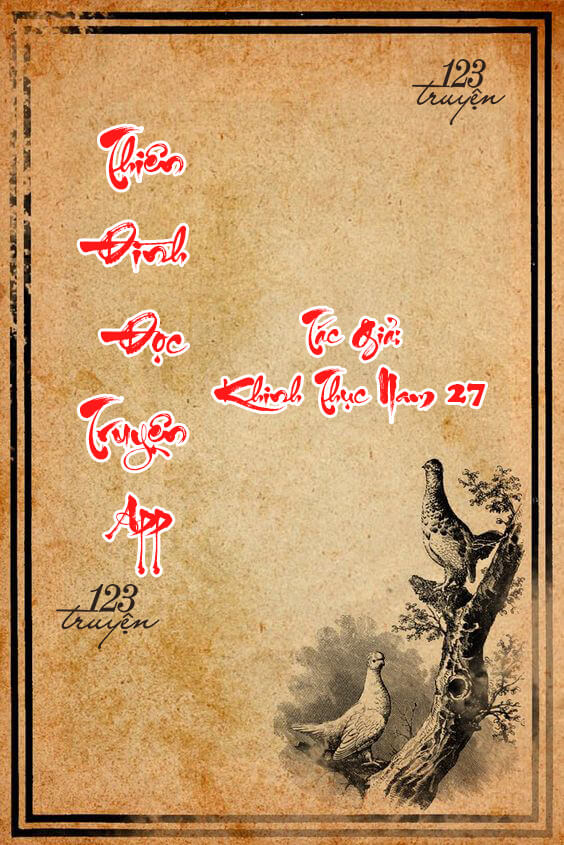 123
truyện
Thiên
Định
Đọc
Truyện
App
Tác Giả:
Khinh Thục Nam 27
123
truyện